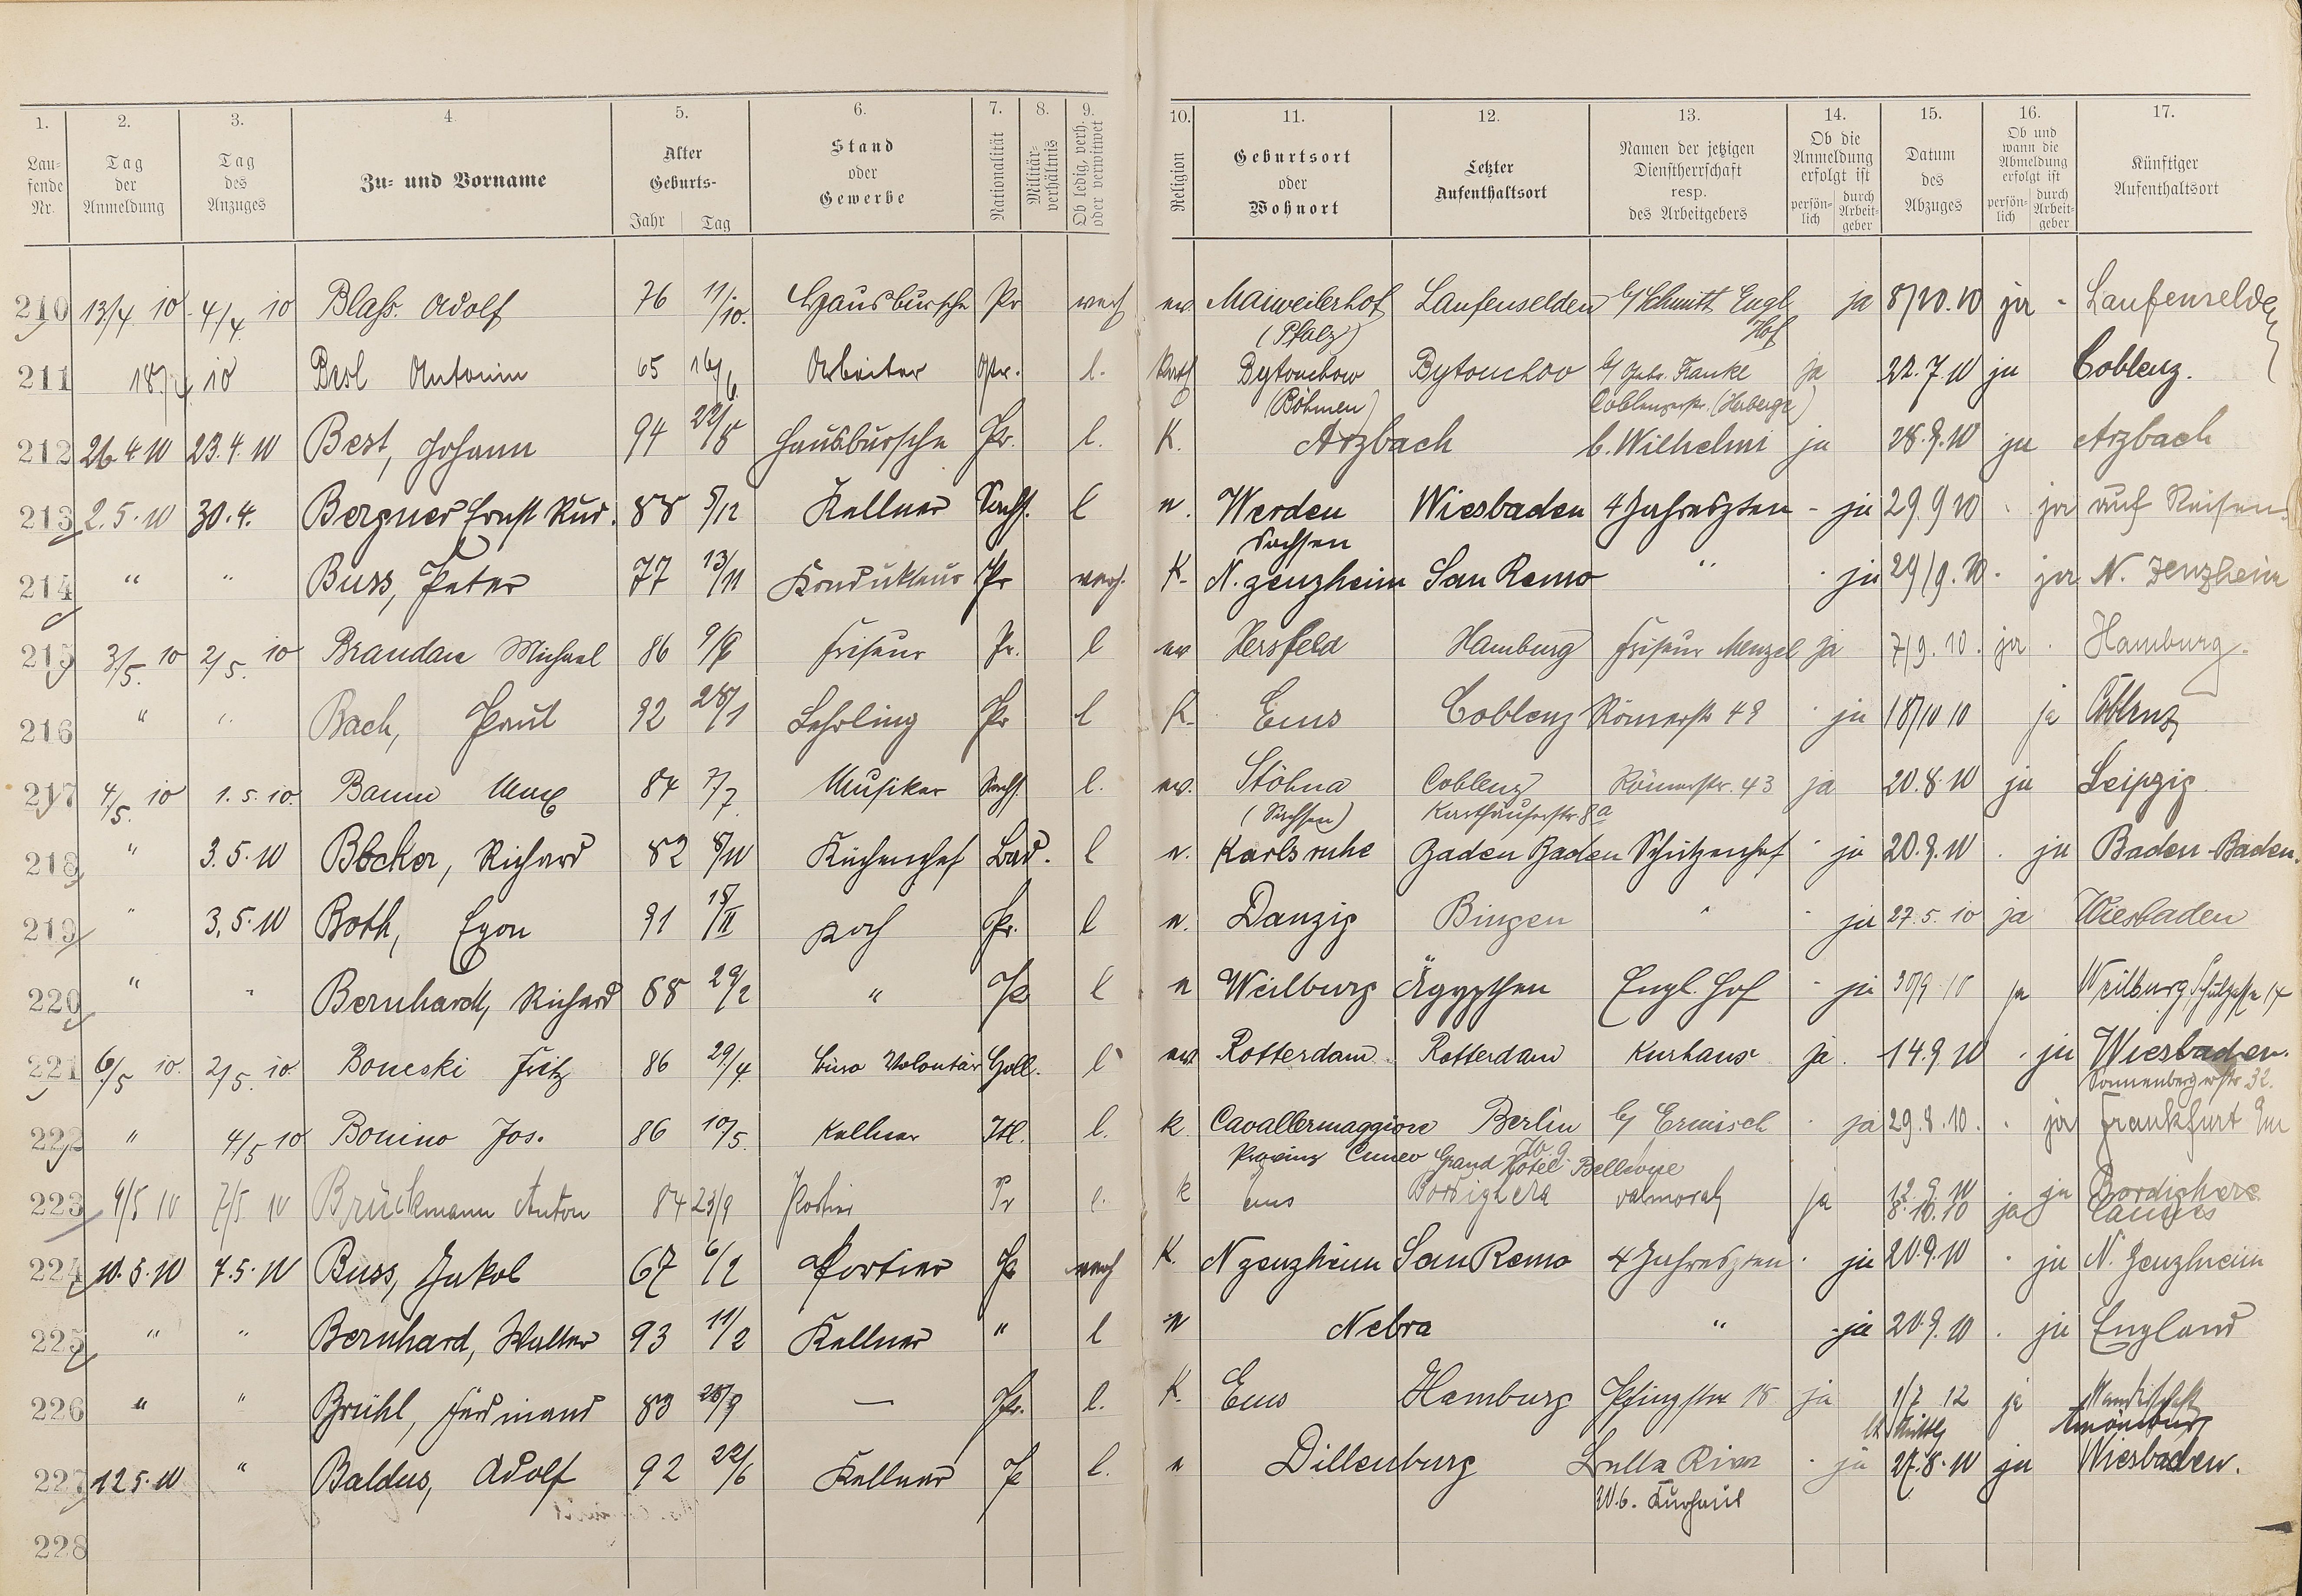 1. 2. 3. 4. 5. 6. 7. 8. 9. 10. 11. 12. 13. 14. 15. 16. 17.
Laufende Nr. Tag der Anmeldung Tag des Anzuges Zu- und Vorname Alter Geburts- Jahr Tag Stand oder Gewerbe Nationalität Militärverhältnis Ob ledig, verh. oder verwitwet Religion Geburtsort oder Wohnort Letzter Aufenthaltsort Namen der jetzigen Dienstherrschaft resp. des Arbeitgebers Ob die Anmeldung erfolgt ist persönlich durch Arbeitgeber Datum des Abzuges Ob und wann die Abmeldung erfolgt ist persönlich durch Arbeitgeber Künftiger Aufenthaltsort
210 13/4 10 4/4. 10 Blass. Adolf 76 11/10. Hausbursche Pr verh ev. Maiweilerhof Laufenselden b/ Schmitt Engl ja 8/10.10 ja - Laufenselden
(Pfalz) Hof
211 18/4 10 Antonin 65 16/6. Arbeiter l. Kath Bytouchow Bytouchov b/ Gebr. Franke ja 22.7.10 ja Coblenz.
(Böhmen) Coblenzerstr. (Herberge)
212 26.4.10 23.4.10 Best, Johann 94 22/8 Hausbursche Pr. l. K. Arzbach b. Wilhelmi ja 28.9.10 ja Arzbach
213 2.5.10 30.4. Bergner Ernst Kur. 88 5/12 Kellner Sachs. l e. Werden Wiesbaden 4 Jahreszten - ja 29.9 10 . ja auf Reisen
Sachsen
214 " " Buss, Peter 77 13/11 Kondukteur Pr verh. K. N. zenzheim San Remo " . ja 29/9.10 . ja N. Zenzheim
215 3/5. 10 2/5. 10 Brandau Michael 86 9/9 Friseur Pr. l ev Hersfeld Hamburg Friseur Menzel ja 7/9.10. ja . Hamburg.
216 " " Bach, Paul 92 28/1 Lehrling Pr l K. Ems Coblenz Römerstr 49 . ja 18/10 10 ja Coblenz
217 4/5. 10 1.5.10. Baum Max 84 7/7. Musiker Sachs. l. ev. Stöhna Coblenz Römerstr. 43 ja 20.8.10 ja Leipzig
(Sachsen) Karthäuserstr. 8a
218 " 3.5.10 Böcker, Richard 82 8/10 Küchenchef Bad. l e. Karlsruhe Baden Baden Schützenhof . ja 20.9.10 . ja Baden-Baden.
219 " 3.5.10 Both, Egon 91 18/II Koch Pr. l e. Danzig Bingen " . ja 27.5.10 ja Wiesbaden
220 " " Bernhardt, Richard 88 29/2 " Pr l e Weilburg Ägypthen Engl. Hof . ja 30/9 10 ja Weilburg, Schulgasse 14
221 6/5 10. 2/5. 10. Boneski Fritz 86 29/4. Büro Volontär Holl. l ev. Rotterdam Rotterdam Kurhaus ja. 14.9.10 . ja Wiesbaden.
Sonnenbergerstr 32.
222 " 4/5 10 Bonino Jos. 86 10/5. Kellner Itl. l. k. Cavallermaggiore Berlin b/ Ermisch . ja 29.8.10. . ja Frankfurt
Provinz Cuneo Grand Hotel Bellevue
223 9/5 10 7/5 10 Brückmann Anton 84 23/9 Portier Pr l. k ems Bordighera valmoral ja 12.9.10 . ja Bordighera
8.10.10 ja Cannes
224 10.5.10 7.5.10 Buss, Jakob 67 6/2 Portier Pr verh K. N zenzheim San Remo 4 Jahreszten . ja 20.9.10 . ja N. Zenzheim
225 " " Bernhard, Walter 93 11/2 Kellner " l e Nebra " . ja 20.9.10 . ja England
226 " " Brühl, Ferdinand 83 28/9 — Pr. l. K. Ems Hamburg Pfingstw 18 ja 1/7 12 ja Wanderschaft
lt.
227 12.5.10 " Baldus, Adolf 92 22/6 Kellner Pr l. e Dillenburg Bella Riva . ja 27.8.10 ja Wiesbaden.
10.6. Kurhaus
228